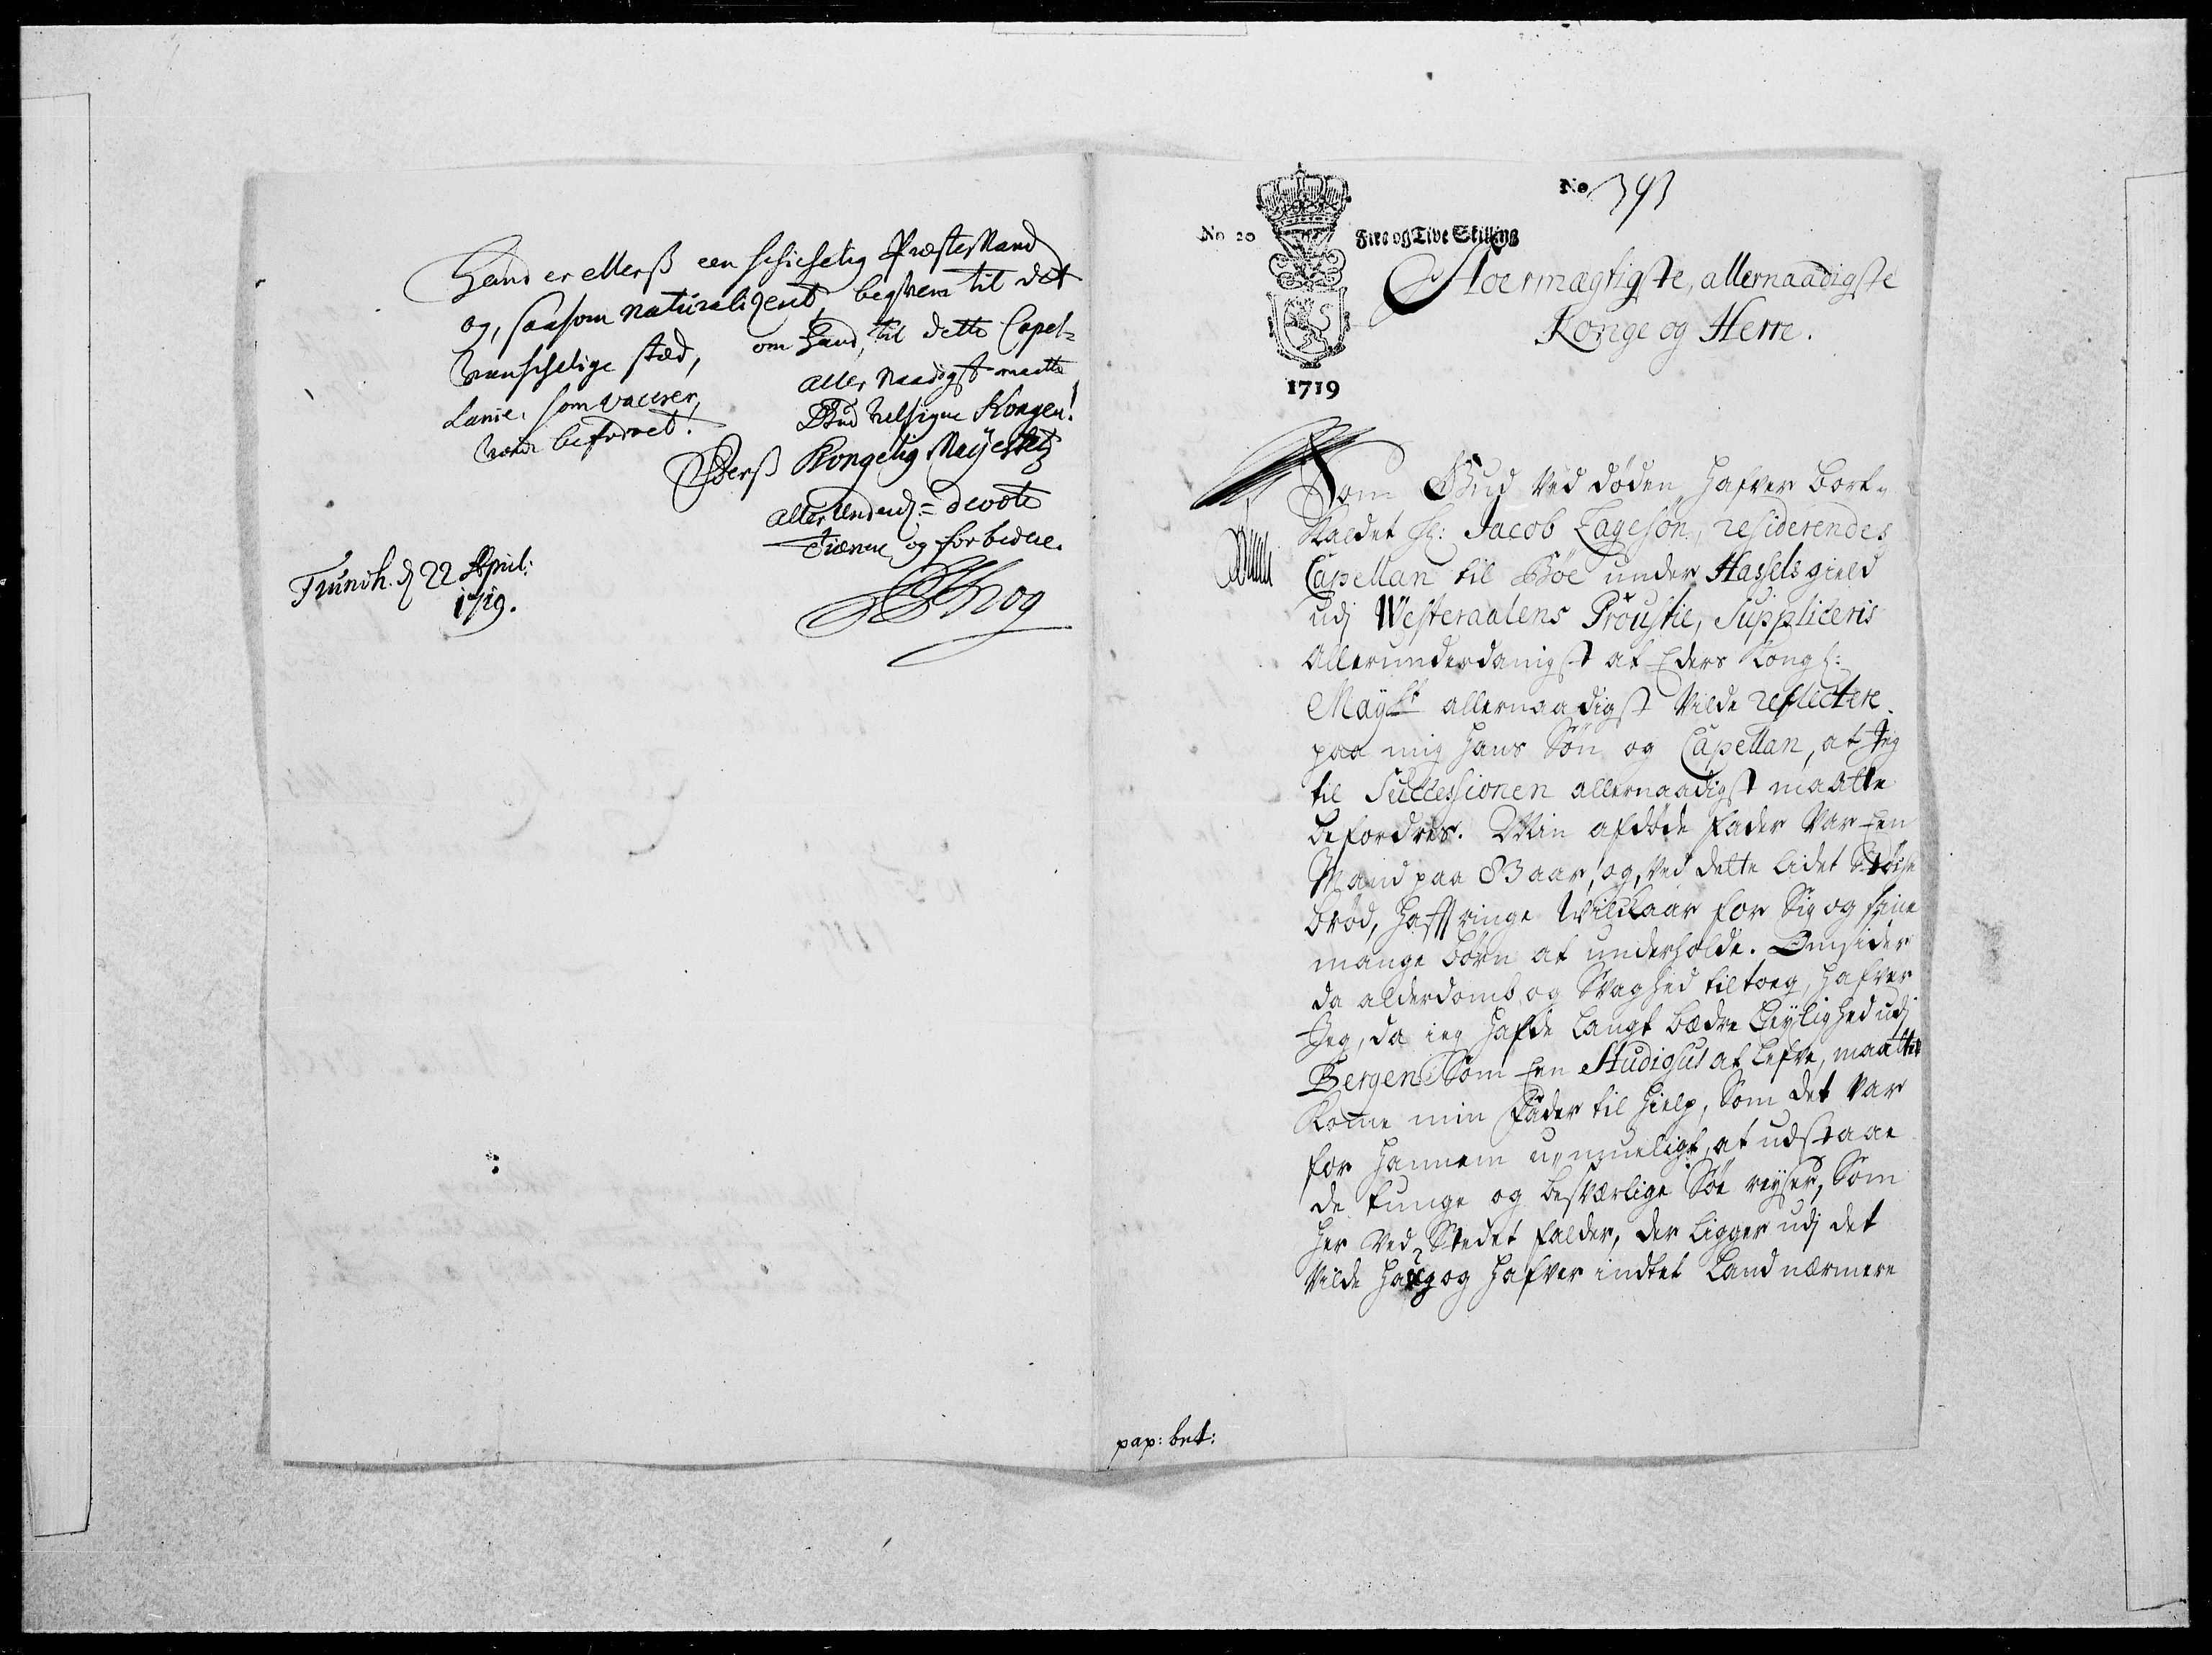 Hand er ellerß een schichelig Præstemand
og, saasom naturalisent, beqvem til det
vanschelige stæd, om Hand, til dette Capel=
lanie, som vacerer, aller Naadigst maatte
vorde befodret! Gud velsigne Kongen!
Eders Kongelig Mayestetz
aller Underd:= devote
Tienere og forbedere.
Trundh. d 22 April:
1719.
Krog
No 393
No 20 Fire og Tive Skilling
1719
Stoermægtigste, allernaadigste
Konge og Herre.
Som Gud ved døden hafver bort=
Kaldet Sl: Jacob Lagesøn, residerendes
Capellan til Bøe under Hassels gield
udj Westeraalens Proustie, Suppliceris
Allerunderdanigst at Eders Kongl:
Mayst allernaadigst vilde reflectere
paa mig hans Søn og Capellan, at Jeg
til Successionen allernaadigst maatte
befordres. Min afdøde fader var Een
Mand paa 83 aar, og, ved dette lidet
brød, hafft ringe Wilckaar for Sig og sine
mange børn at underholde. Omsider
da alderdomb og Svaghed tiltoeg, hafver
Jeg, da ieg hafde langt bædre Leylighed udj
Bergen Som Een Studiosus at lefve, maatte
Komme min Fader til hielp, Som det var
for hannem u=mueligt, at udstaae
de tunge og besværlige Søe reyser, Som
her ved Stedet falder, der ligger udj det
Vilde Hauf og hafver indtet Land nærmere
pap: bet: